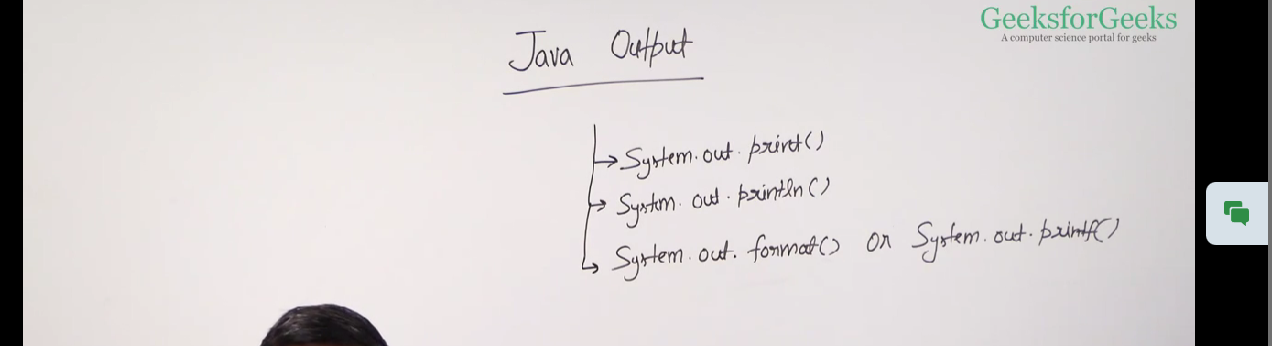 GeeksforGeeks
A computer science portal for geeks
Java Output
System.out.print()
System.out.println()
System.out.format() or System.out.printf()